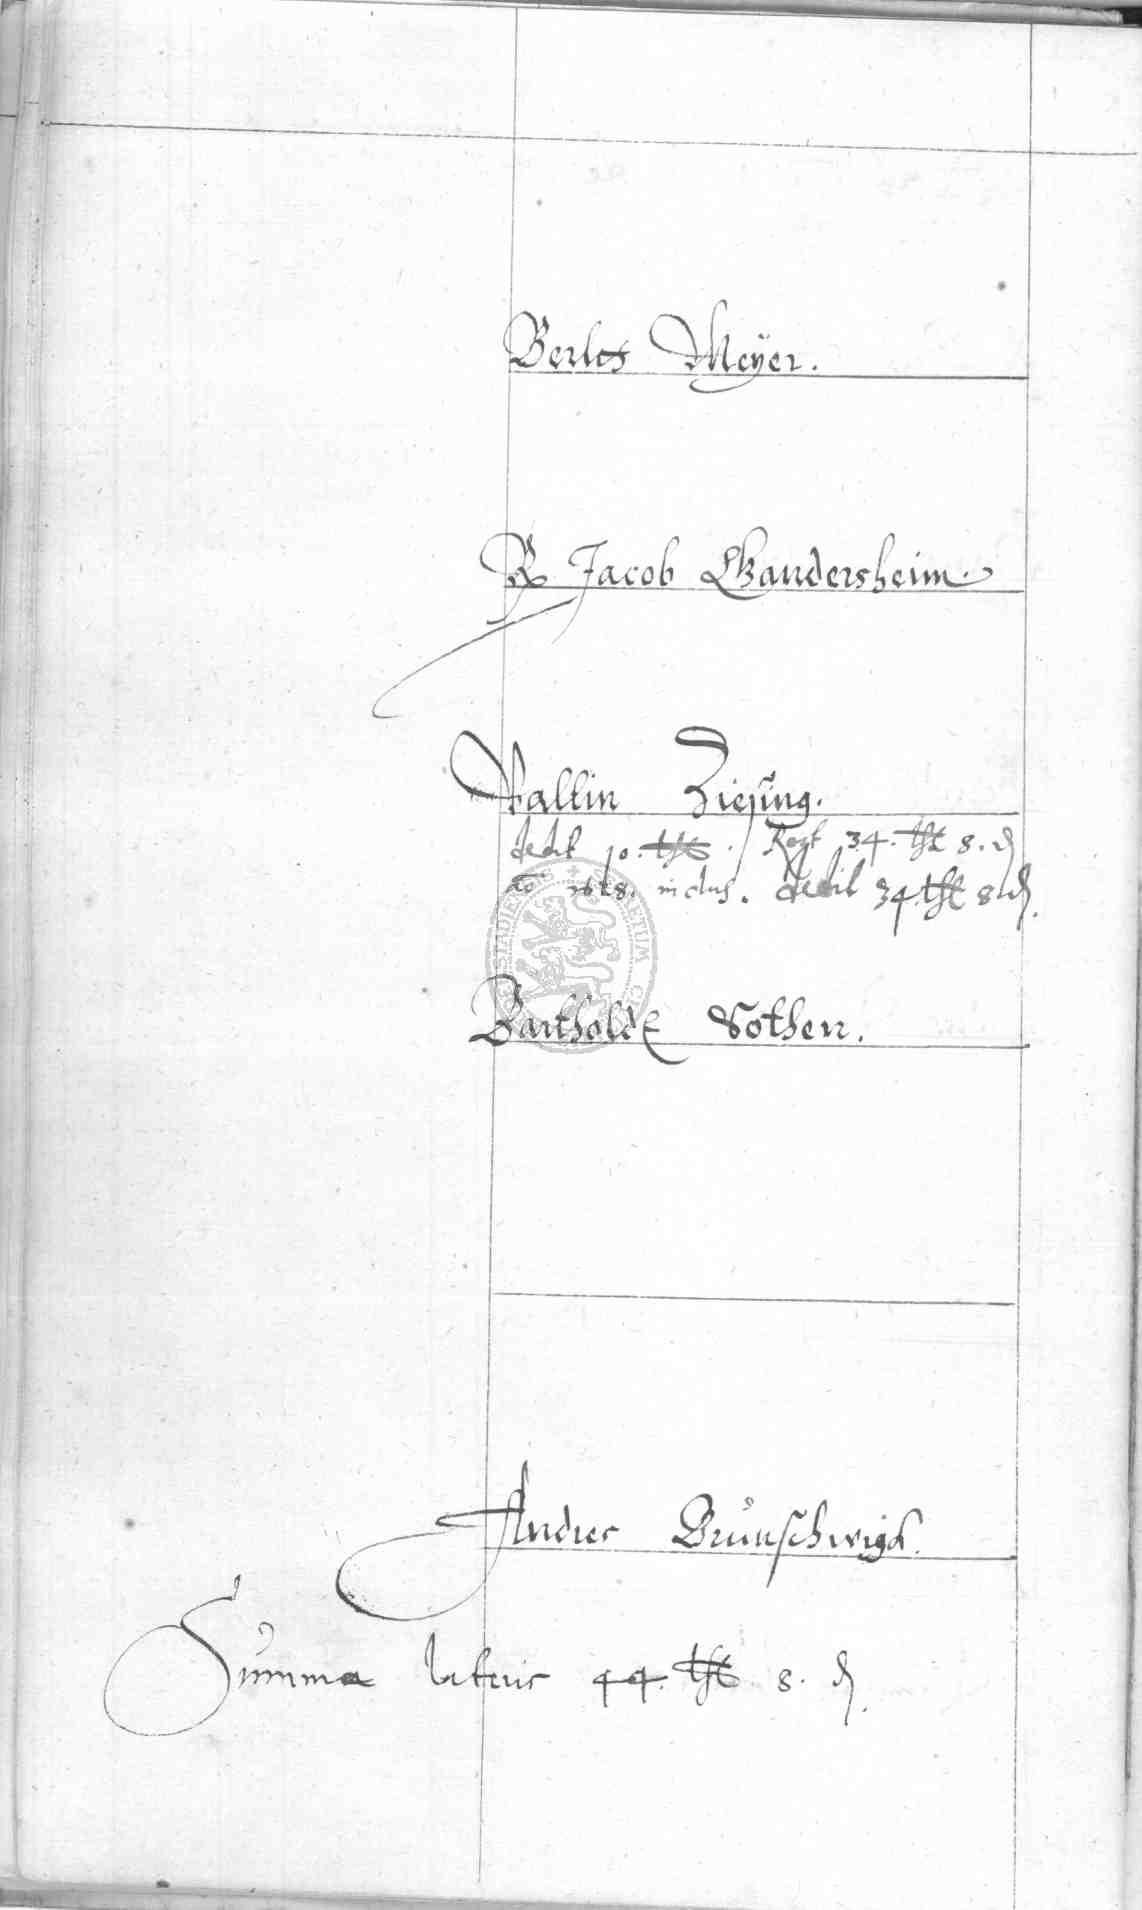 Berlet Meyer.
R Jacob Gandersheim.
Valltin Ziesing.
dedit 10. thl. Rest 34. thl 8. d
Ao 1628. dedit 34. thl 8 d.
Bartholdt Nothen.
Andres Brunschwigk.
Summa lateris 44. thl 8. d.